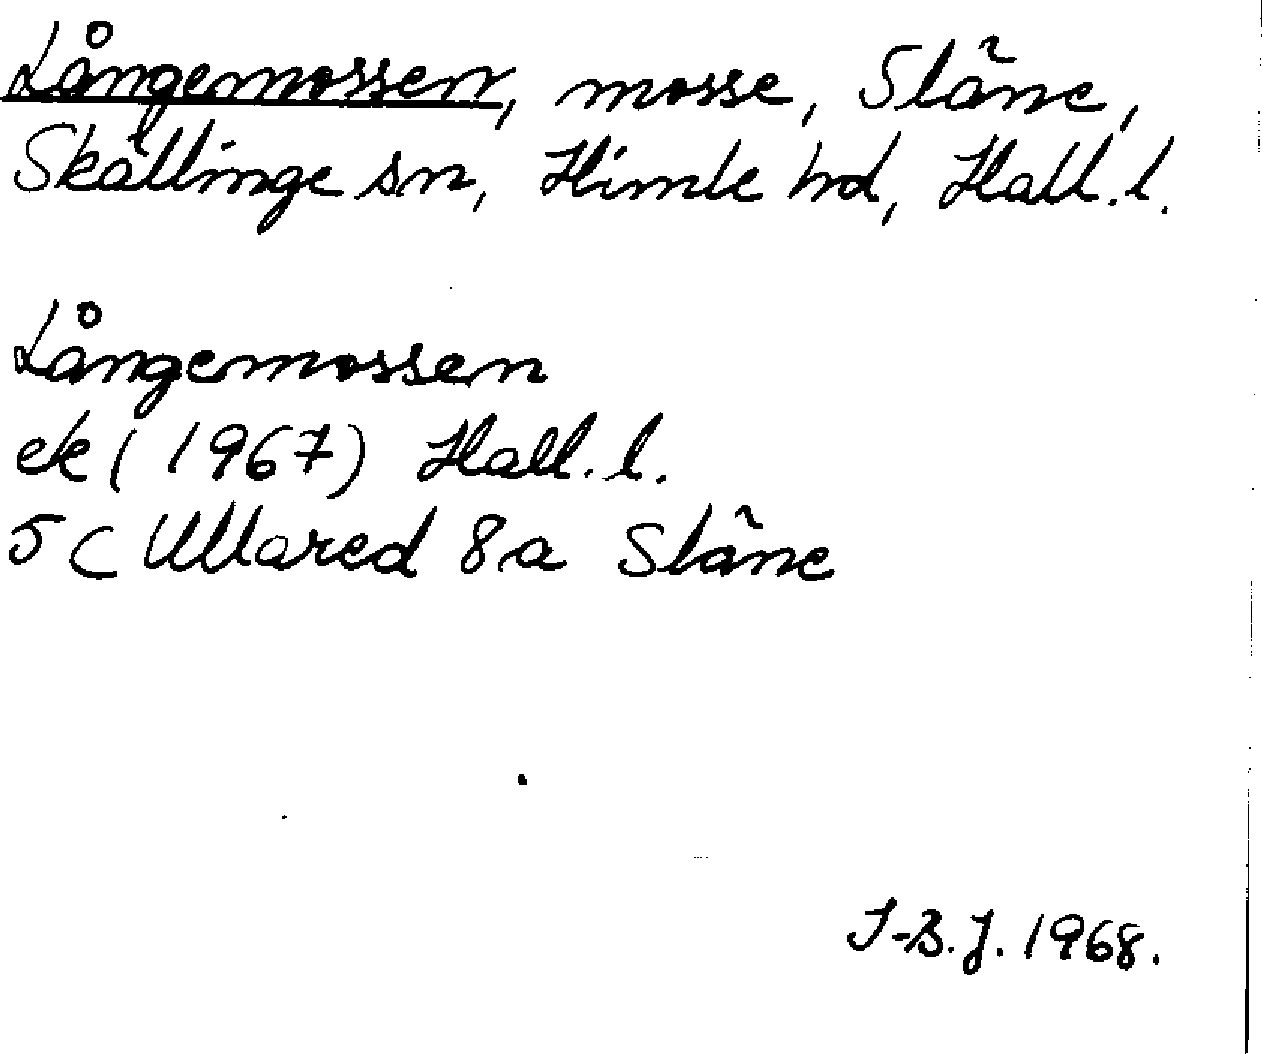 Långemossen, mosse, Släne,
Skällinge sn, Himle hd, Hall. l.
Långemossen
ek (1967) Hall. l.
5 C Ullared 8 a Släne
I-B.J. 1968.